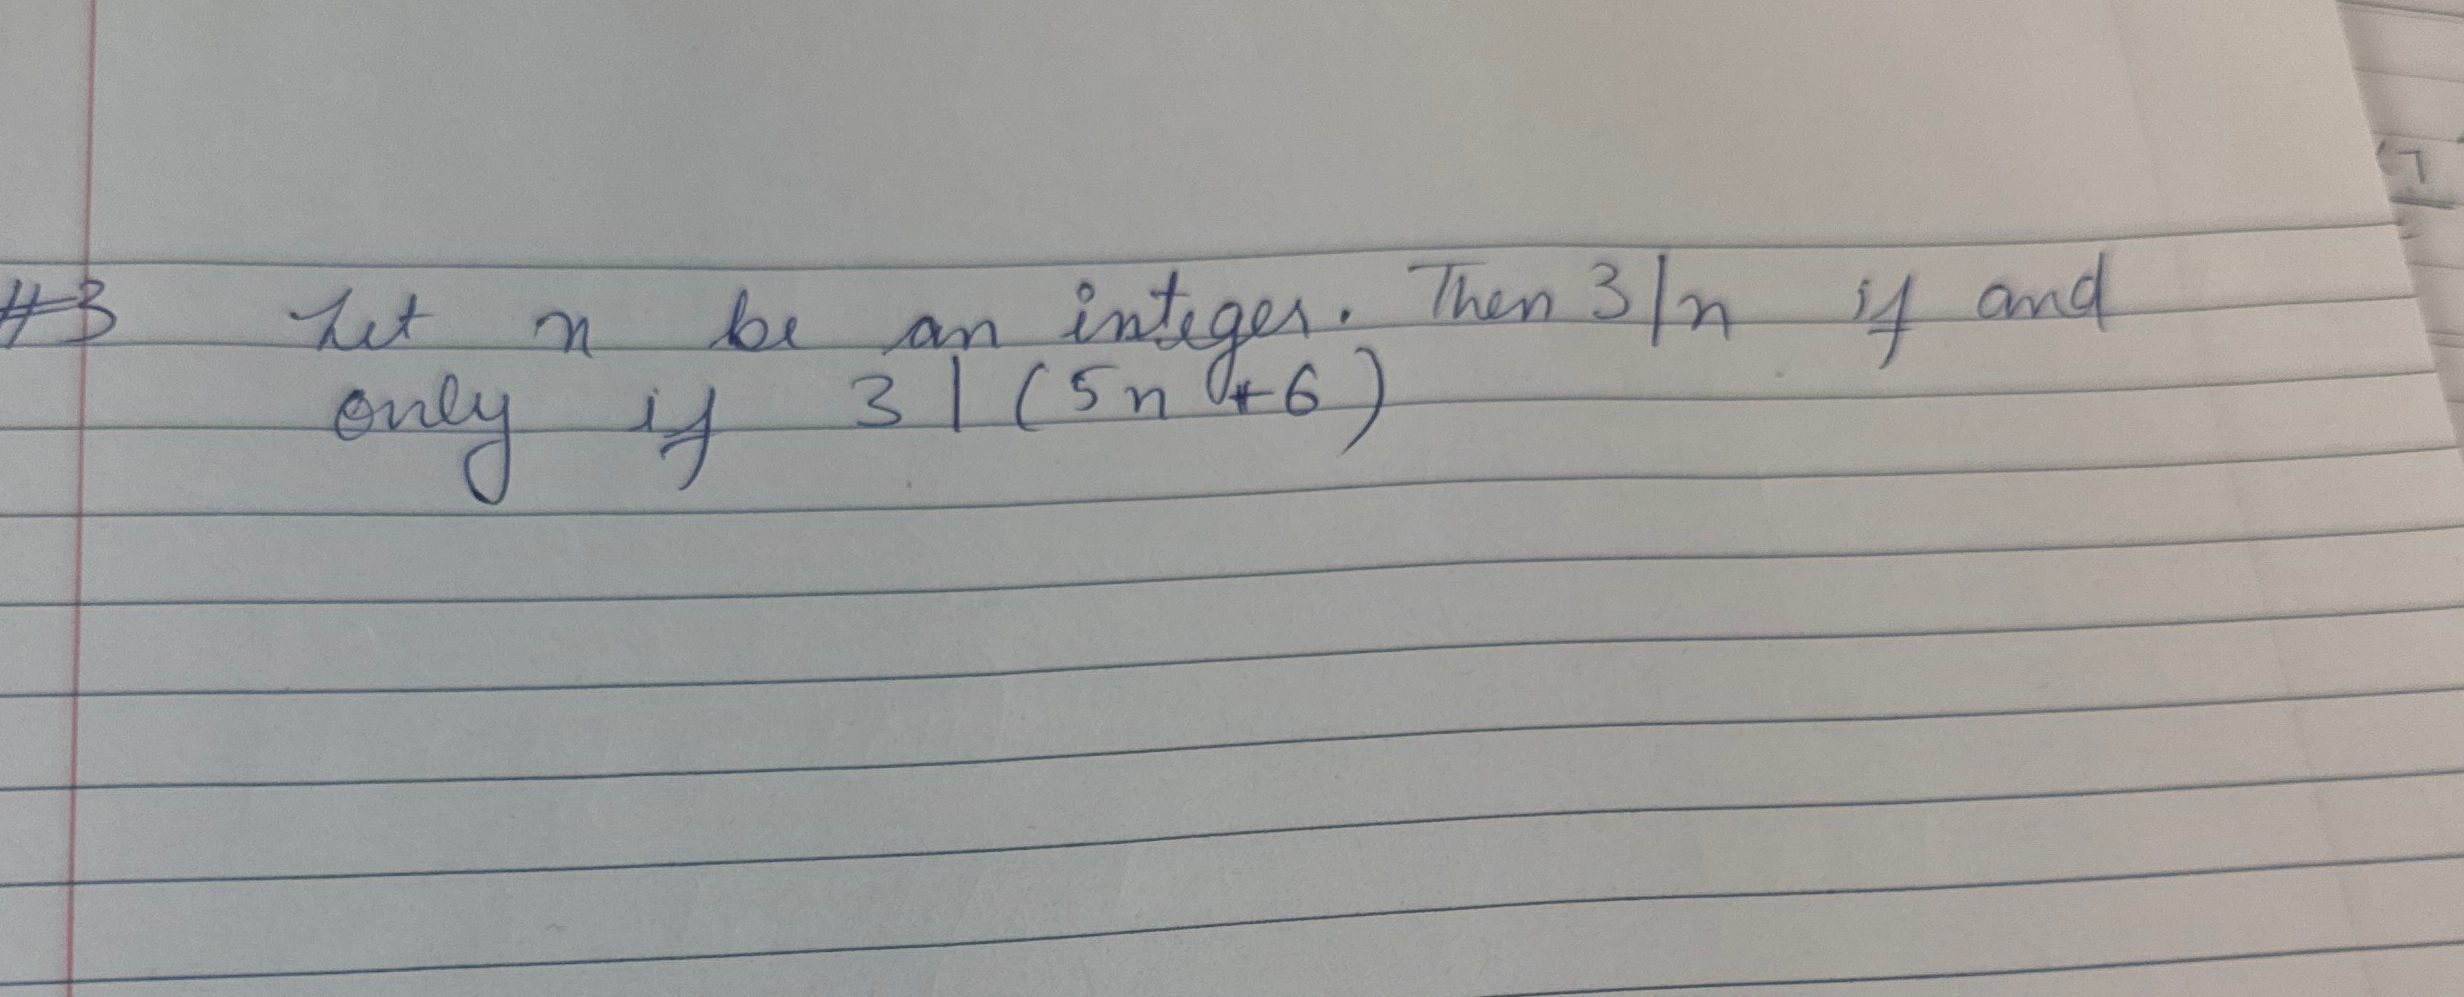 #3 Let n be an integer. Then 3|n if and
only if 3 | (5n + 6)